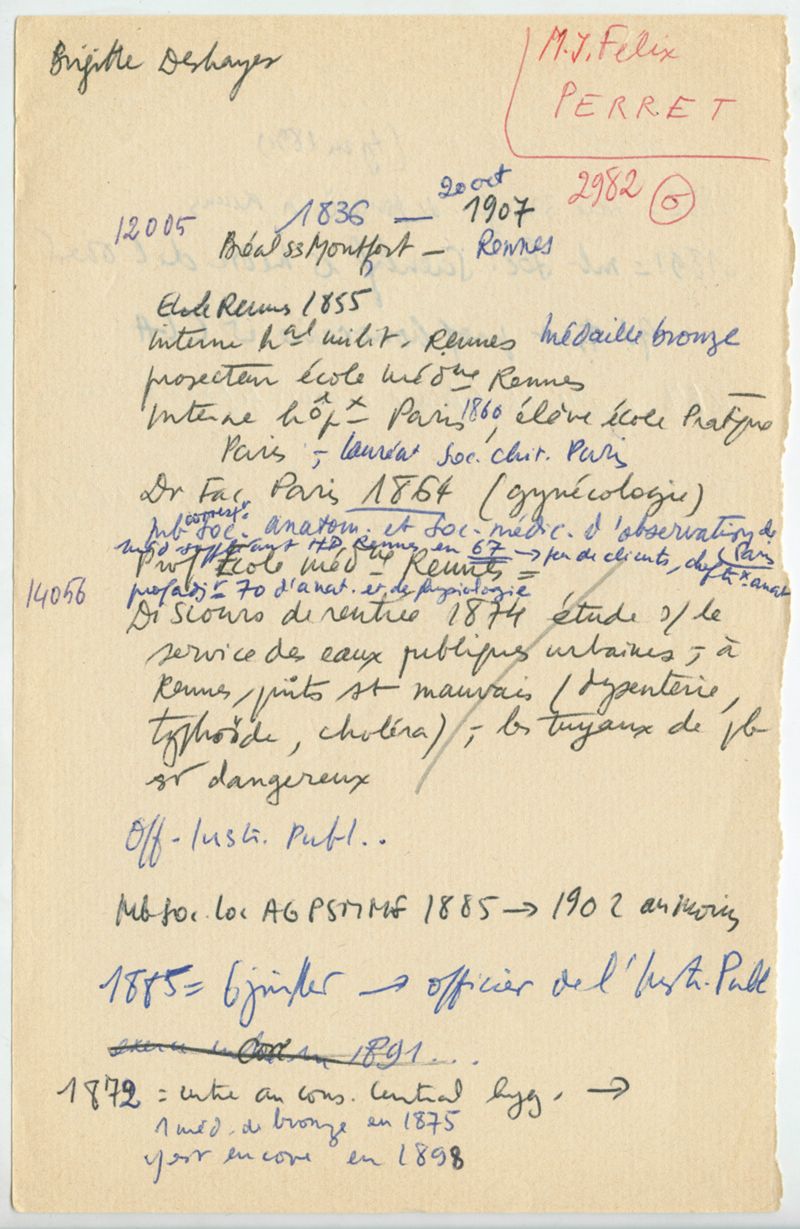 Brigitte Deshayes
M.J. Felix
PERRET
2982 σ
12005 1836 — 20 oct 1907
Bréal ss Montfort — Rennes
Ecole Rennes 1855
interne hal milit. Rennes médaille bronze
prosecteur école médne Rennes
Interne hôpx Paris 1860, élève école Pratique
Paris ; lauréat Soc. chir. Paris
Dr Fac Paris 1864 (gynécologie)
mb corresp. Soc. anatom. et Soc. médic. d'observation de Paris
méd suppléant HD Rennes en 67 → peu de clients, chef trx anat
Prof Ecole médne Rennes =
14056 prof adjt 70 d'anat. et de physiologie
Discours de rentrée 1874 étude s/ le
service des eaux publiques urbaines ; à
Rennes, puits st mauvais (dysenterie,
typhoïde, choléra) ; les tuyaux de pb
st dangereux
Off. Instr. Publ..
Mb Soc. loc AGPSMMF 1885 → 1902 au moins
1885 = 6 juillet → officier de l'Instr. Publ
1891...
1872 = entre au cons. Central hyg. →
1 méd. de bronze en 1875
y est encore en 1898